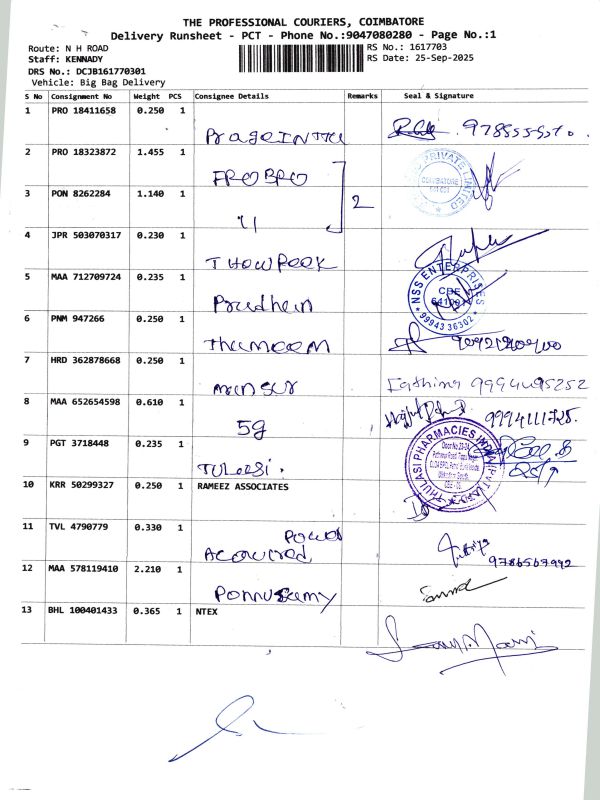 THE PROFESSIONAL COURIERS, COIMBATORE
Delivery Runsheet - PCT - Phone No.:9047080280 - Page No.:1
Route: N H ROAD
RS No.: 1617703
Staff: KENNADY
RS Date: 25-Sep-2025
DRS No.: DCJB161770301
Vehicle: Big Bag Delivery
S No Consignment No Weight PCS Consignee Details Remarks Seal & Signature
1 PRO 18411658 0.250 1
2 PRO 18323872 1.455 1
FROBPO
3 PON 8262284 1.140 1
2
4 JPR 503070317 0.230 1
5 MAA 712709724 0.235 1
NSS ENTERPRISES
CBE
9994336302
6 PNM 947266 0.250 1
7 HRD 362878668 0.250 1
Mansur
Fathima 9994495252
8 MAA 652654598 0.610 1
5g
9994111725.
9 PGT 3718448 0.235 1
TULASI.
THULASI PHARMACIES INDIA PVT LTD
10 KRR 50299327 0.250 1 RAMEEZ ASSOCIATES
11 TVL 4790779 0.330 1
9786567992
12 MAA 578119410 2.210 1
Ponnusamy
13 BHL 100401433 0.365 1 NTEX